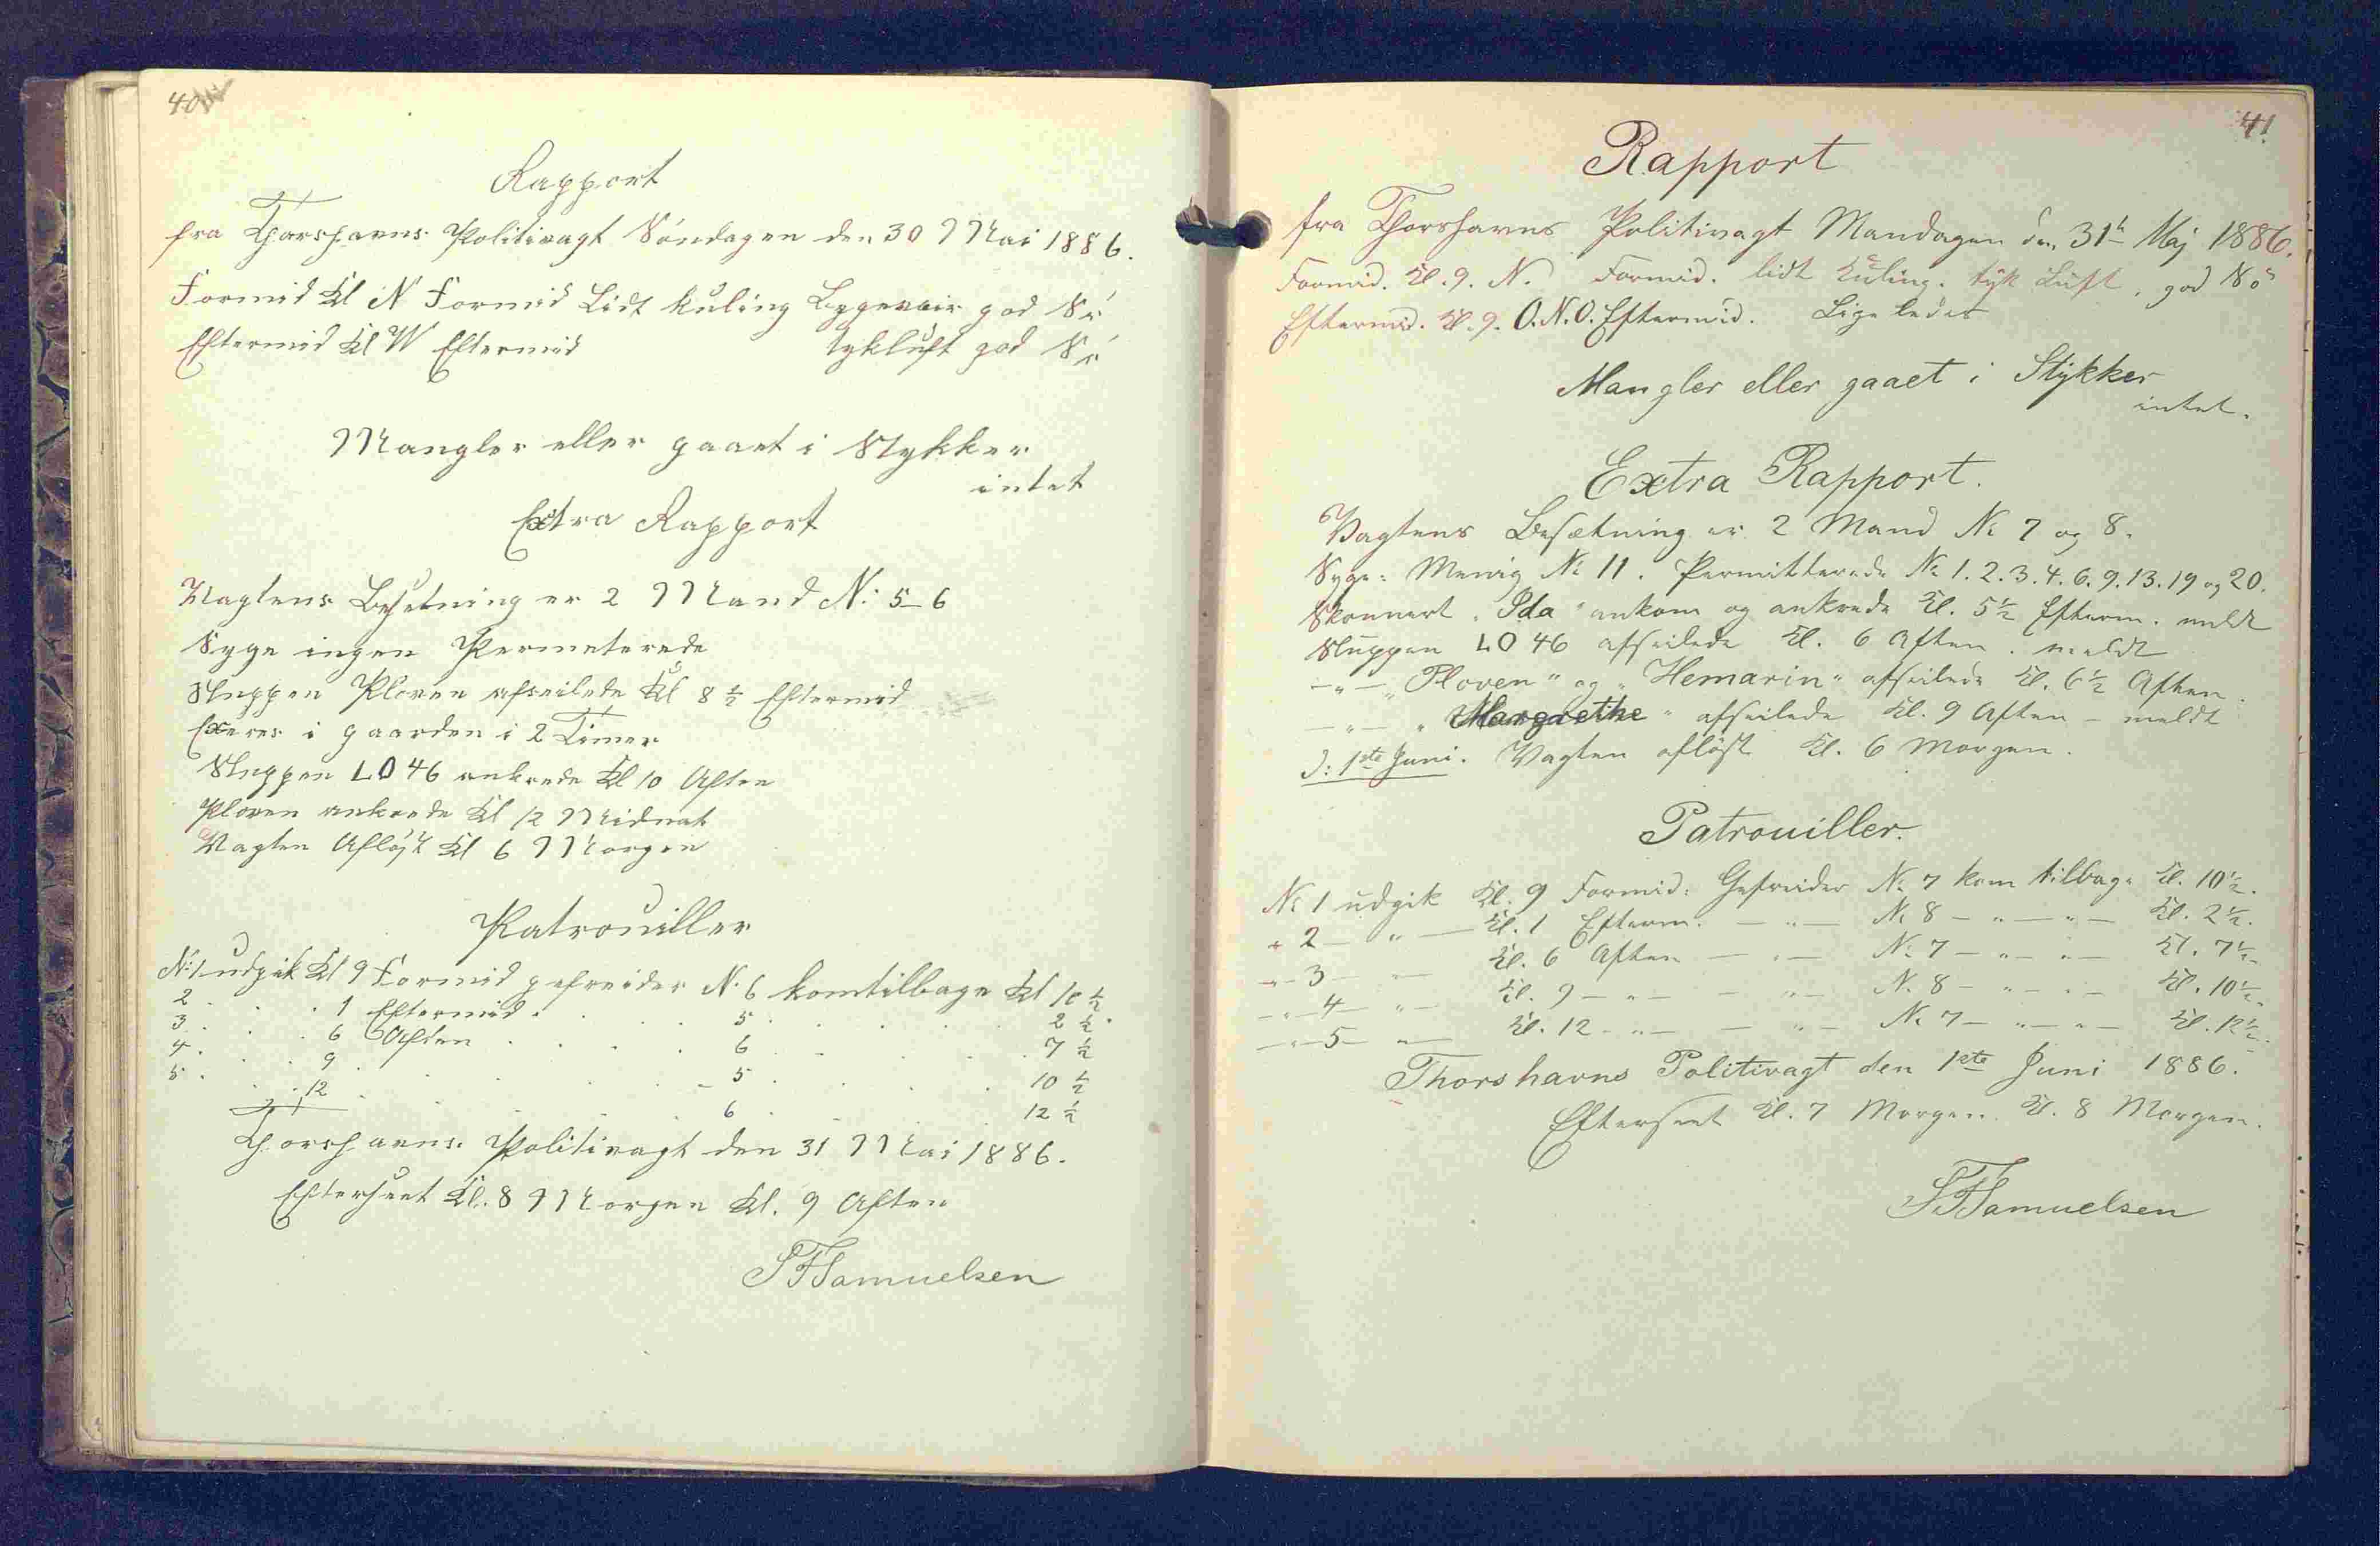 40
Rapport
fra Thorshavns Politivagt Söndagen den 30 Mai 1886.
Formid Kl N Formid Lidt kuling Bygevair god Sö
Eftermid Kl W Eftermid tykluft god Sö
Mangler eller gaaet i Stykker
intet
Extra Rapport
Vagtens Besetning er 2 Mand N: 5-6
Syge ingen Permeterede
Sluppen Ploven afseilede Kl 8 ½ Eftermid
Exeres i gaarden i 2 Timer
Sluppen LO 46 ankrede Kl 10 Aften
Ploven ankrede Kl 12 Midnat
Vagten Aflöst Kl 6 Morgen
Patrouiller
N: 1 udgik Kl 9 Formid gefreider N. 6 kom tilbage Kl 10 ½
2 . . . 1 Eftermid . . . 5 . . . 2 ½
3 . . . 6 Aften . . . 6 . . . 7 ½
4 . . . 9 . . . 5 . . . 10 ½
5 . . . 12 . . . 6 . . . 12 ½
Thorshavns Politivagt den 31 Mai 1886.
Efterseet Kl. 8 Morgen Kl. 9 Aften
SFSamuelsen
41
Rapport
fra Thorshavns Politivagt Mandagen den 31te Maj 1886.
Formid. Kl. 9. N. Formid. lidt Kuling. tyk Luft, god Sö
Eftermid. Kl. 9. O.N.O. Eftermid. Ligeledes
Mangler eller gaaet i Stykker
intet.
Extra Rapport.
Vagtens Besætning er 2 Mand No 7 og 8.
Syge: Menig No 11. Permitterede No 1. 2. 3. 4. 6. 9. 13. 19 og 20.
Skonnert "Ida" ankom og ankrede Kl. 5½ Efterm. meldt
Sluppen LO 46 afseilede Kl. 6 Aften. meldt
—"— "Ploven" og "Hemarin" afseilede Kl. 6½ Aften.
—"— "Margrethe" afseilede Kl. 9 Aften - meldt
D: 1ste Juni. Vagten aflöst Kl. 6 Morgen.
Patrouiller.
No 1 udgik Kl. 9 Formid: Gefreider No 7 kom tilbage Kl. 10½.
" 2 — " — Kl. 1 Efterm. — " — No 8 — " — " — Kl. 2½.
—"— 3 — " — Kl. 6 Aften — " — No 7 — " — " — Kl. 7½
—"— 4 — " — Kl. 9 — " — — " — No 8 — " — " — Kl. 10½.
—"— 5 — " — Kl. 12 — " — — " — No 7 — " — " — Kl. 12½.
Thorshavns Politivagt den 1ste Juni 1886.
Efterseet Kl. 7 Morgen. Kl. 8 Morgen.
SFSamuelsen